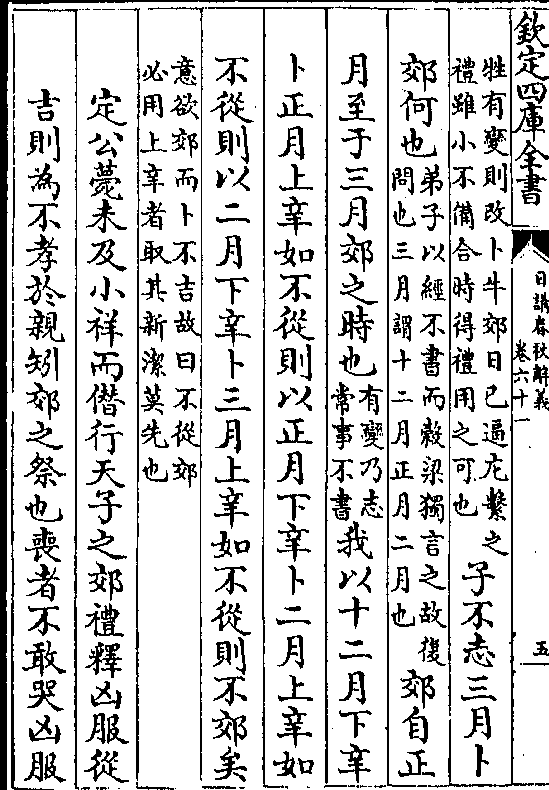 欽定四庫全書
日講春秋解義
卷六十一
五
牲有變則改卜牛郊日已逼庀繫之
禮雖小不備合時得禮用之可也
子不志三月卜
郊何也
弟子以經不書而穀梁獨言之故復
問也三月謂十二月正月二月也
郊自正
月至于三月郊之時也
有變乃志
常事不書
我以十二月下辛
卜正月上辛如不從則以正月下辛卜二月上辛如
不從則以二月下辛卜三月上辛如不從則不郊矣
意欲郊而卜不吉故曰不從郊
必用上辛者取其新潔莫先也
定公薨未及小祥而僣行天子之郊禮釋凶服從
吉則為不孝於親矧郊之祭也喪者不敢哭凶服